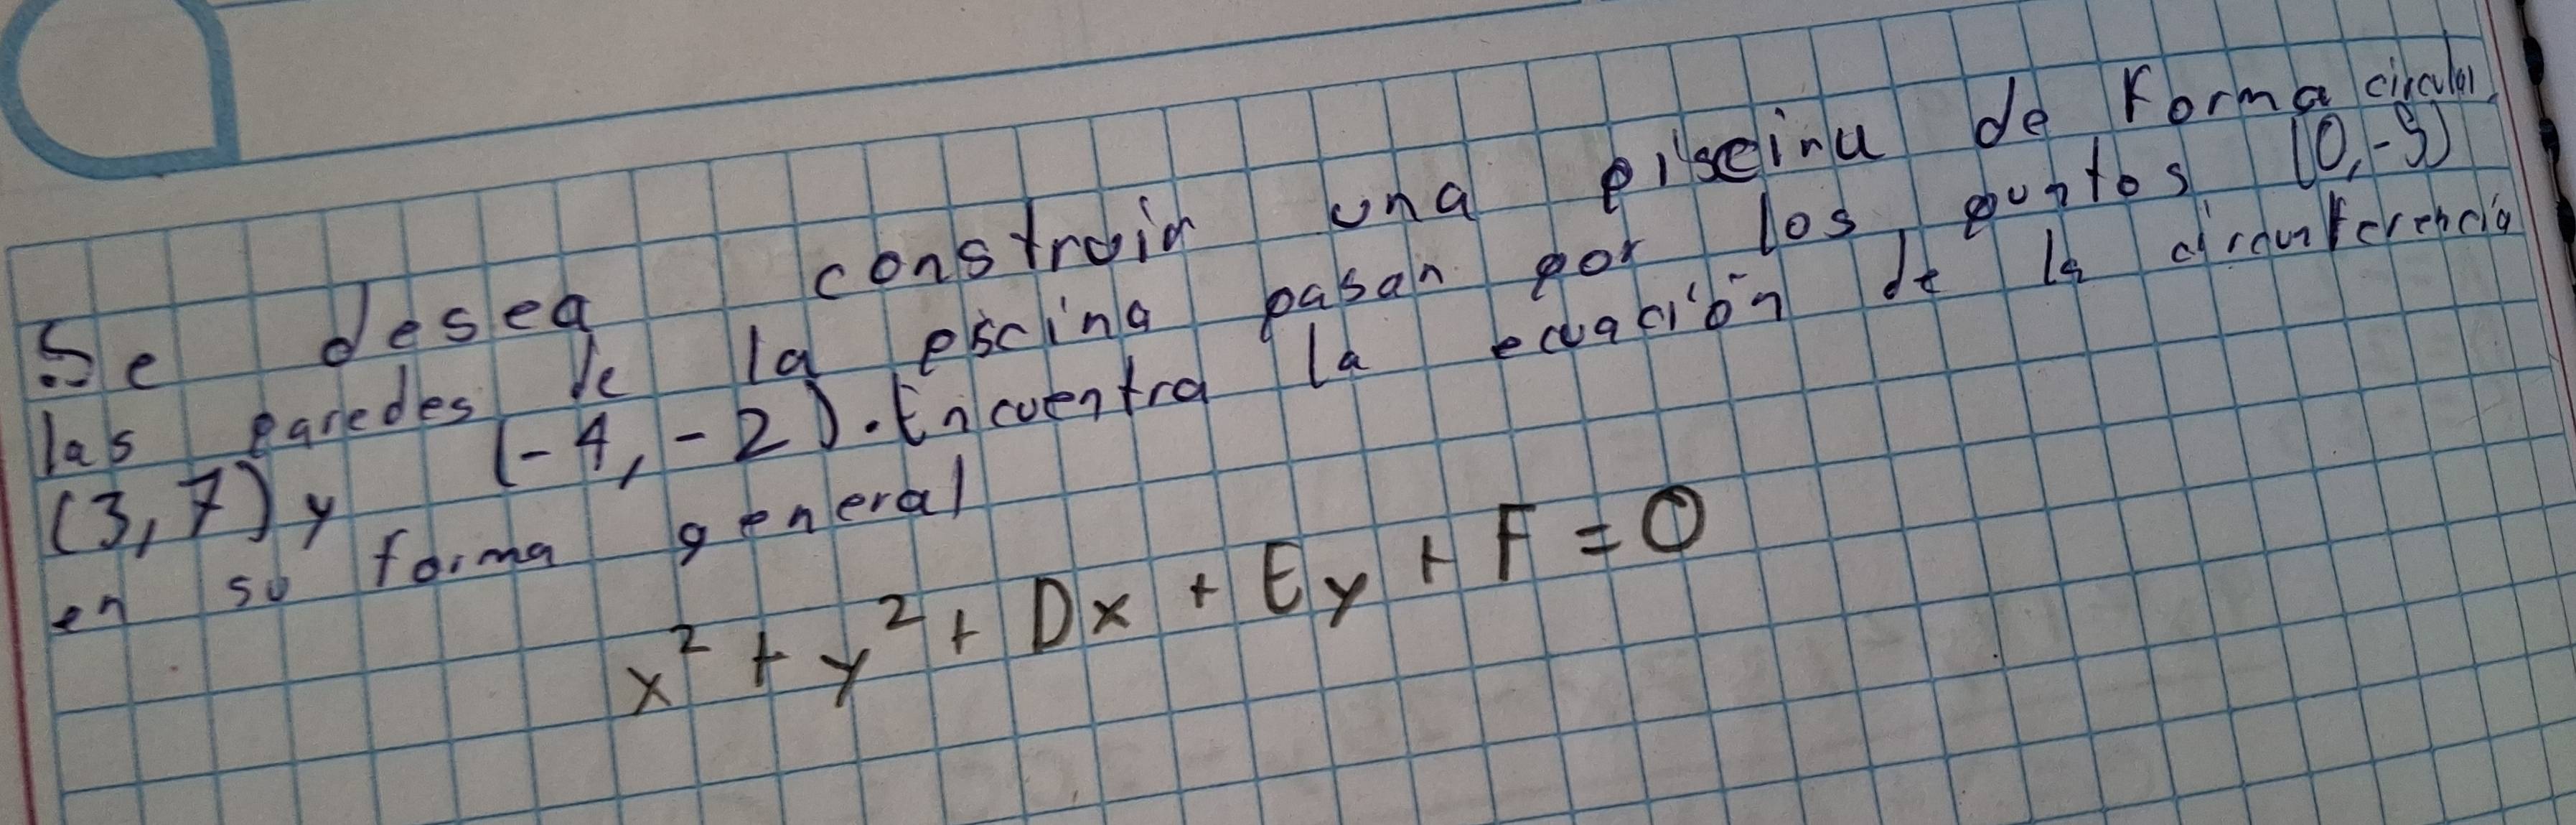 Se desea construir una piscina de Forma circular,
las paredes de la piscina pasan por los puntos (0,-5)
(3,7) y (-4,-2). Encuentra la ecuación de la circunferencia
en su forma general
x² + y² + Dx + Ey + F = 0